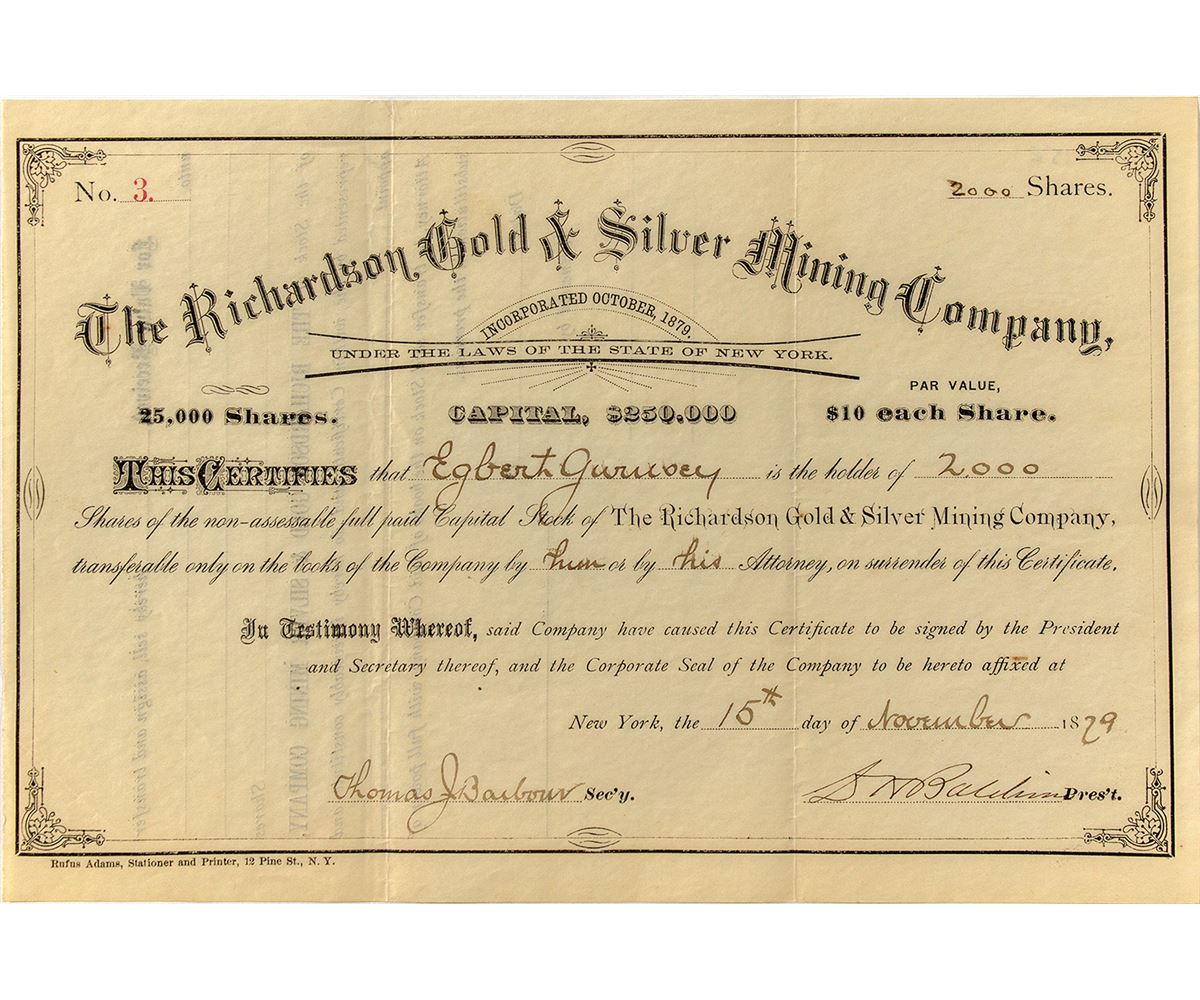 No. 3. 2000 Shares.
The Richardson Gold & Silver Mining Company,
INCORPORATED OCTOBER, 1879.
UNDER THE LAWS OF THE STATE OF NEW YORK.
PAR VALUE,
25,000 Shares. CAPITAL, $250.000 $10 each Share.
THIS CERTIFIES that Egbert Guernsey is the holder of 2000
Shares of the non-assessable full paid Capital Stock of The Richardson Gold & Silver Mining Company,
transferable only on the books of the Company by him or by his Attorney, on surrender of this Certificate.
In Testimony Whereof, said Company have caused this Certificate to be signed by the President
and Secretary thereof, and the Corporate Seal of the Company to be hereto affixed at
New York, the 15th day of November 1879
Thomas J Barbour Sec'y. Baldwin Pres't.
Rufus Adams, Stationer and Printer, 12 Pine St., N. Y.